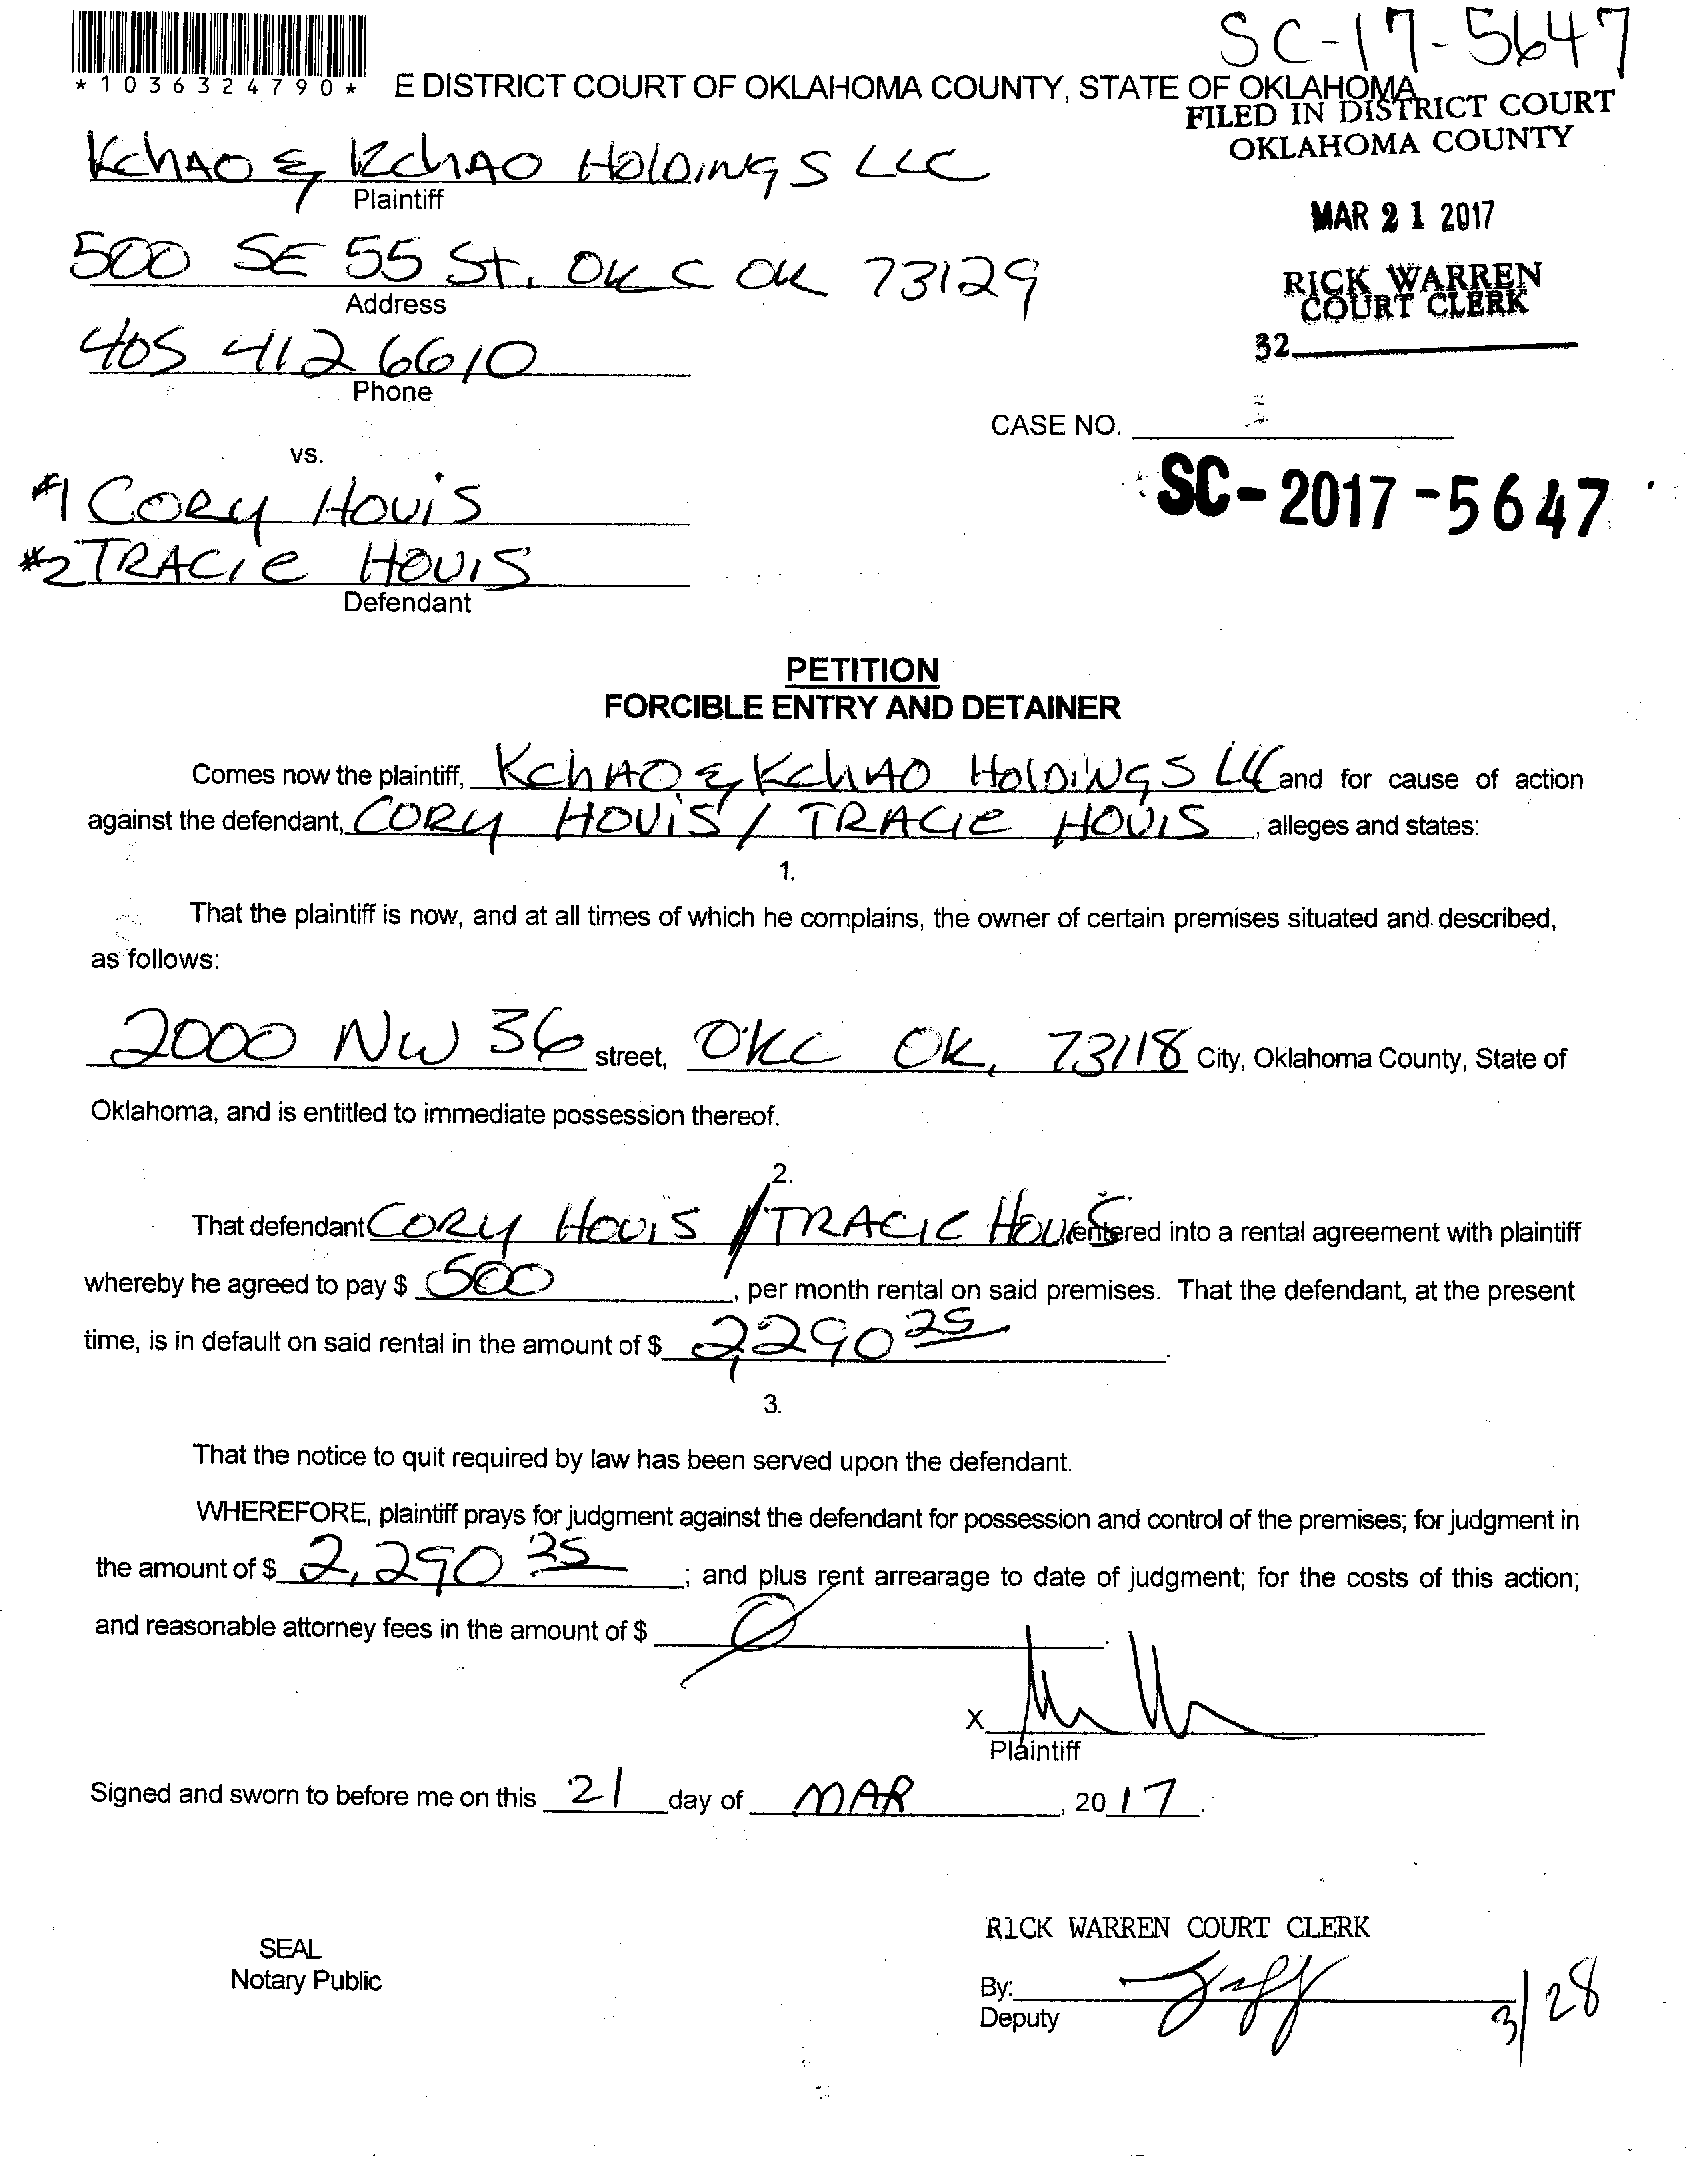 SC-17-5647
*1036324790*
E DISTRICT COURT OF OKLAHOMA COUNTY, STATE OF OKLAHOMA
FILED IN DISTRICT COURT
OKLAHOMA COUNTY
KchAO & KchAO HOLDINGS LLC
Plaintiff
MAR 21 2017
500 SE 55 St. OKC OK 73129
Address
RICK WARREN
COURT CLERK
405 412 6610
Phone
32
CASE NO.
vs.
#1 CORY HOVIS
SC-2017-5647
#2 TRACIE HOVIS
Defendant
PETITION
FORCIBLE ENTRY AND DETAINER
Comes now the plaintiff, KchAO & KchAO HOLDINGS LLC and for cause of action
against the defendant, CORY HOVIS / TRACIE HOVIS, alleges and states:
1.
That the plaintiff is now, and at all times of which he complains, the owner of certain premises situated and described,
as follows:
2000 NW 36 street, OKC OK, 73118 City, Oklahoma County, State of
Oklahoma, and is entitled to immediate possession thereof.
2.
That defendant CORY HOVIS / TRACIE HOVIS entered into a rental agreement with plaintiff
whereby he agreed to pay $ 500, per month rental on said premises. That the defendant, at the present
time, is in default on said rental in the amount of $ 2,290 25.
3.
That the notice to quit required by law has been served upon the defendant.
WHEREFORE, plaintiff prays for judgment against the defendant for possession and control of the premises; for judgment in
the amount of $ 2,290 25; and plus rent arrearage to date of judgment; for the costs of this action;
and reasonable attorney fees in the amount of $ Ø.
X
Plaintiff
Signed and sworn to before me on this 21 day of MAR, 2017.
RICK WARREN COURT CLERK
SEAL
Notary Public
By:
Deputy
3/28